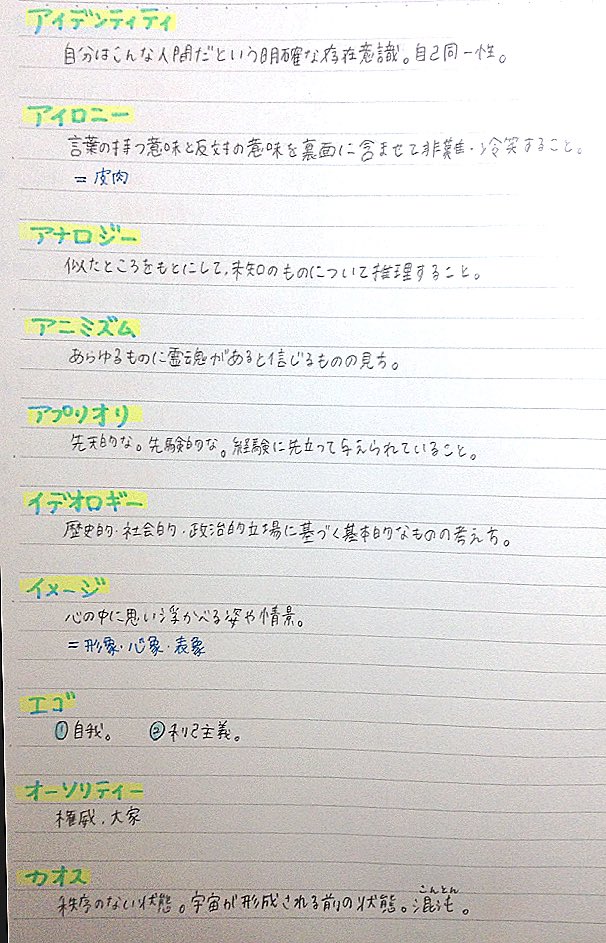 アイデンティティ
自分はこんな人間だという明確な存在意識。自己同一性。
アイロニー
言葉の持つ意味と反対の意味を裏面に含ませて非難・冷笑すること。
= 皮肉
アナロジー
似たところをもとにして、未知のものについて推理すること。
アニミズム
あらゆるものに霊魂があると信じるものの見方。
アプリオリ
先天的な。先験的な。経験に先立って与えられていること。
イデオロギー
歴史的・社会的・政治的立場に基づく基本的なものの考え方。
イメージ
心の中に思い浮かべる姿や情景。
= 形象・心象・表象
エゴ
①自我。 ②利己主義。
オーソリティー
権威、大家
カオス
こんとん
秩序のない状態。宇宙が形成される前の状態。混沌。